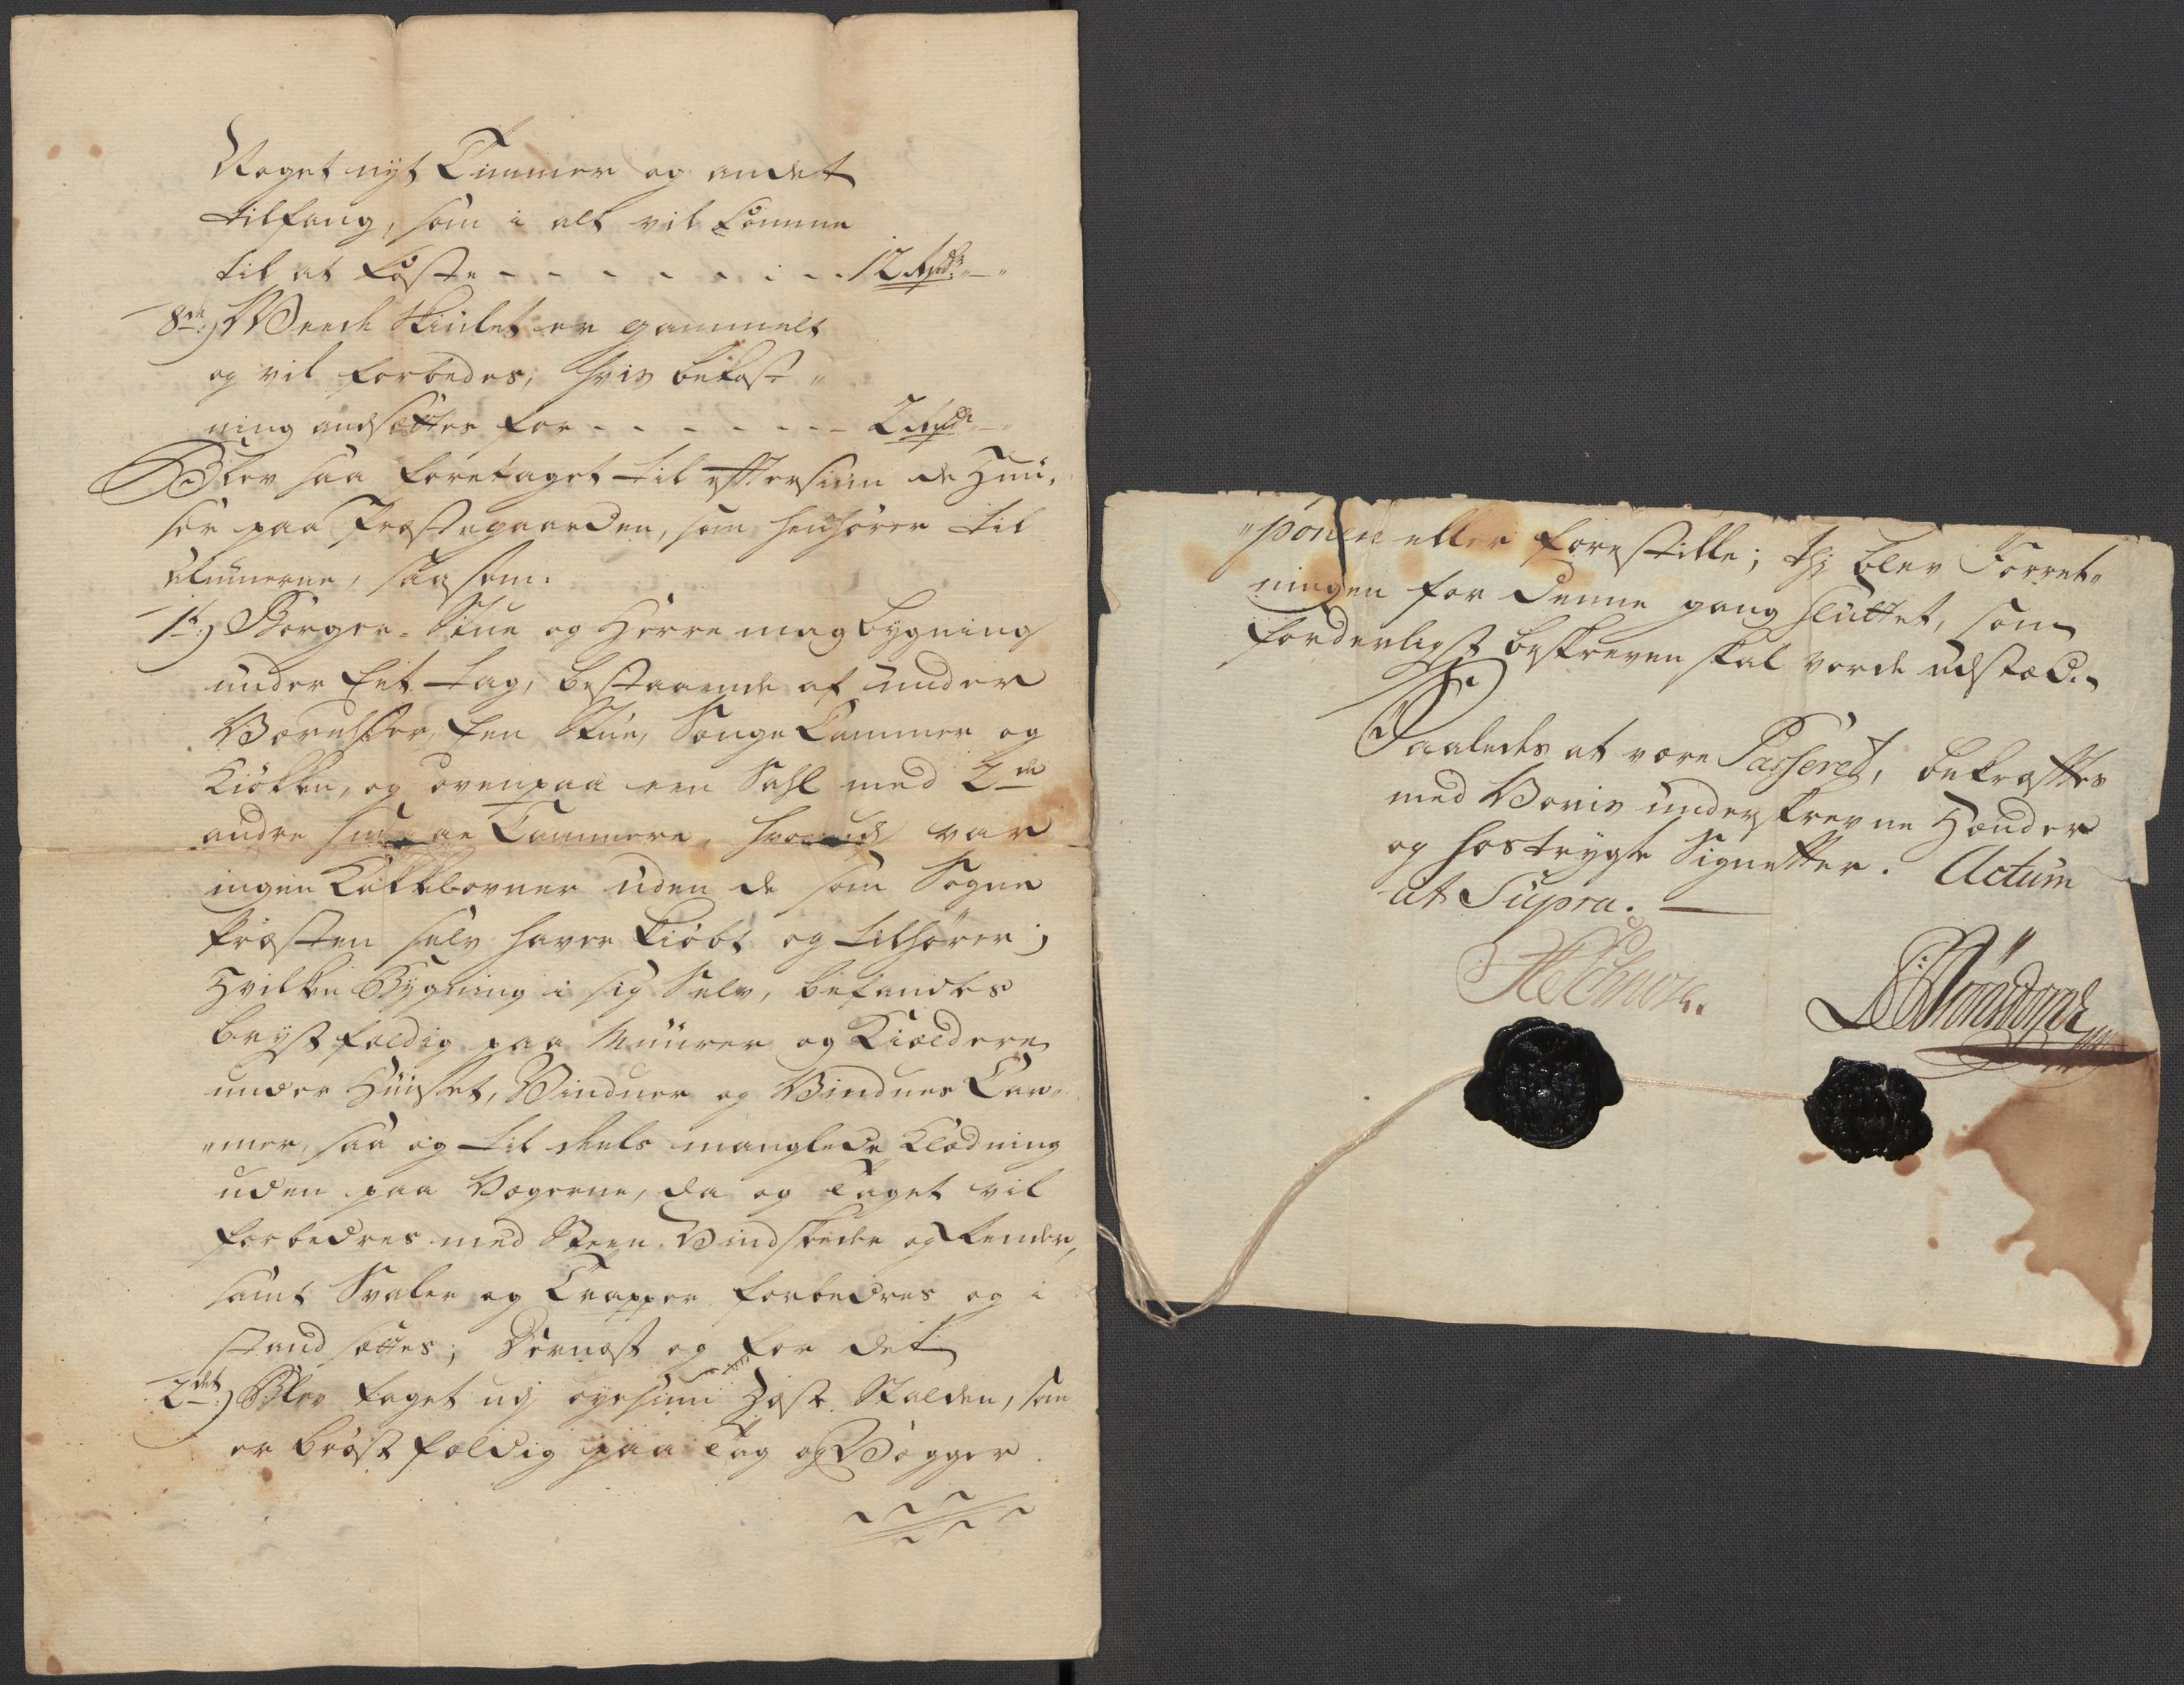 Noget nyt Timmer og andet
tilfang, som i alt vil komme
til at koste - - - - - - - - 12 Rdr „ — „
8de) Weede Skiulet er gammelt
og vil forbedes, hvis bekost„
ning andsættes for - - - - - - - 2 Rdr „ — „
Blev saa foretaget til eftersiun de Huu„
ser paa Præstegaarden, som henhører til
Alunerne, saasom.
1te) Borger-Stue og Herremagbygning
under Eet tag, bestaaende af under
Værelser, Een Stue, Sænge Cammer og
Kiøkken, og ovenpaa een Sahl med 2de
andre smaae Cammere, hvorudj var
ingen Kakkelovner uden de som Sogne
Præsten selv haver kiøbt og tilhører;
Hvilken Bygning i sig Selv, befandtes
brystfældig paa Muurer og Kieldere
under Huuset, Vinduer og Vindues Car„
„mer, saa og til deels manglede Klædning
uden paa Vægerne, da og Taget vil
forbedres med Steen, Vindskeder og Render,
samt Svaler og Trapper forbedres og i
stand sættes; Dernæst og for det
2det) Blev taget udj øyesiun Heste Stalden, som
er brøstfældig paa Tag og Vægger
„ponere eller forestille; thj blev Forret„
ningen for denne gang sluttet, som
forderligst beskreven skal vorde udstædt.
Saaledes at være Passeret, bekræfftes
med Voris underskrevne Hænder
og hostrygte Signetter. Actum
ut Supra. —